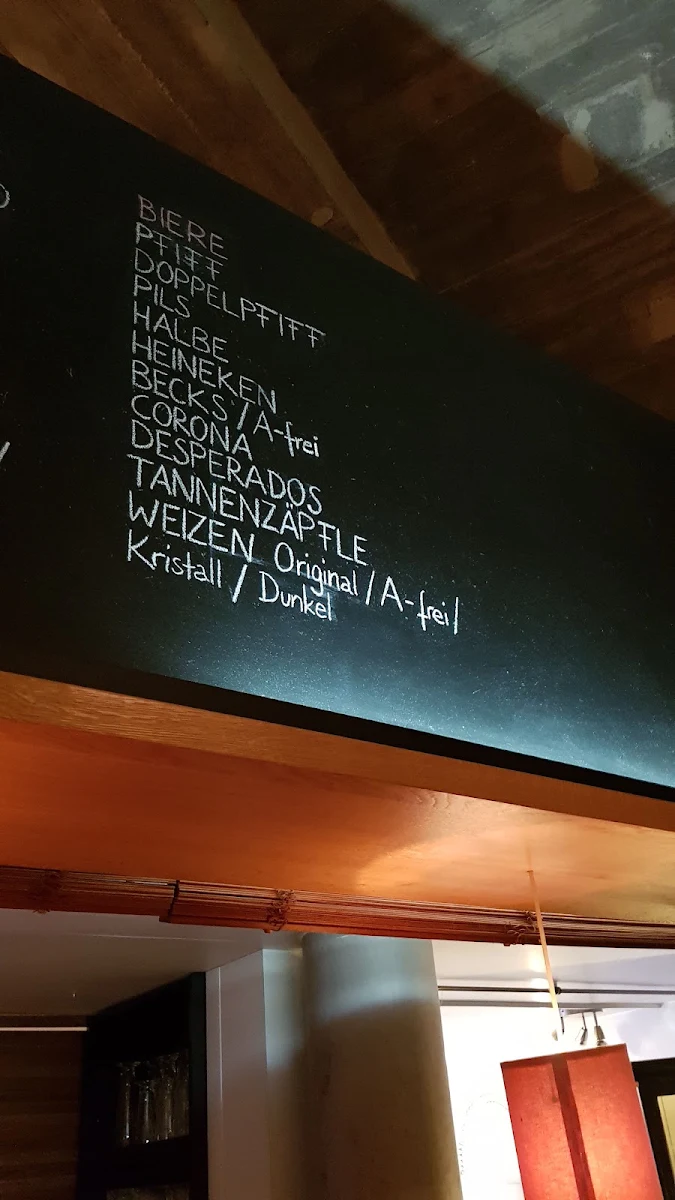 BIERE
PFIFF
DOPPELPFIFF
PILS
HALBE
HEINEKEN
BECKS / A-frei
CORONA
DESPERADOS
TANNENZÄPFLE
WEIZEN Original / A-frei /
Kristall / Dunkel